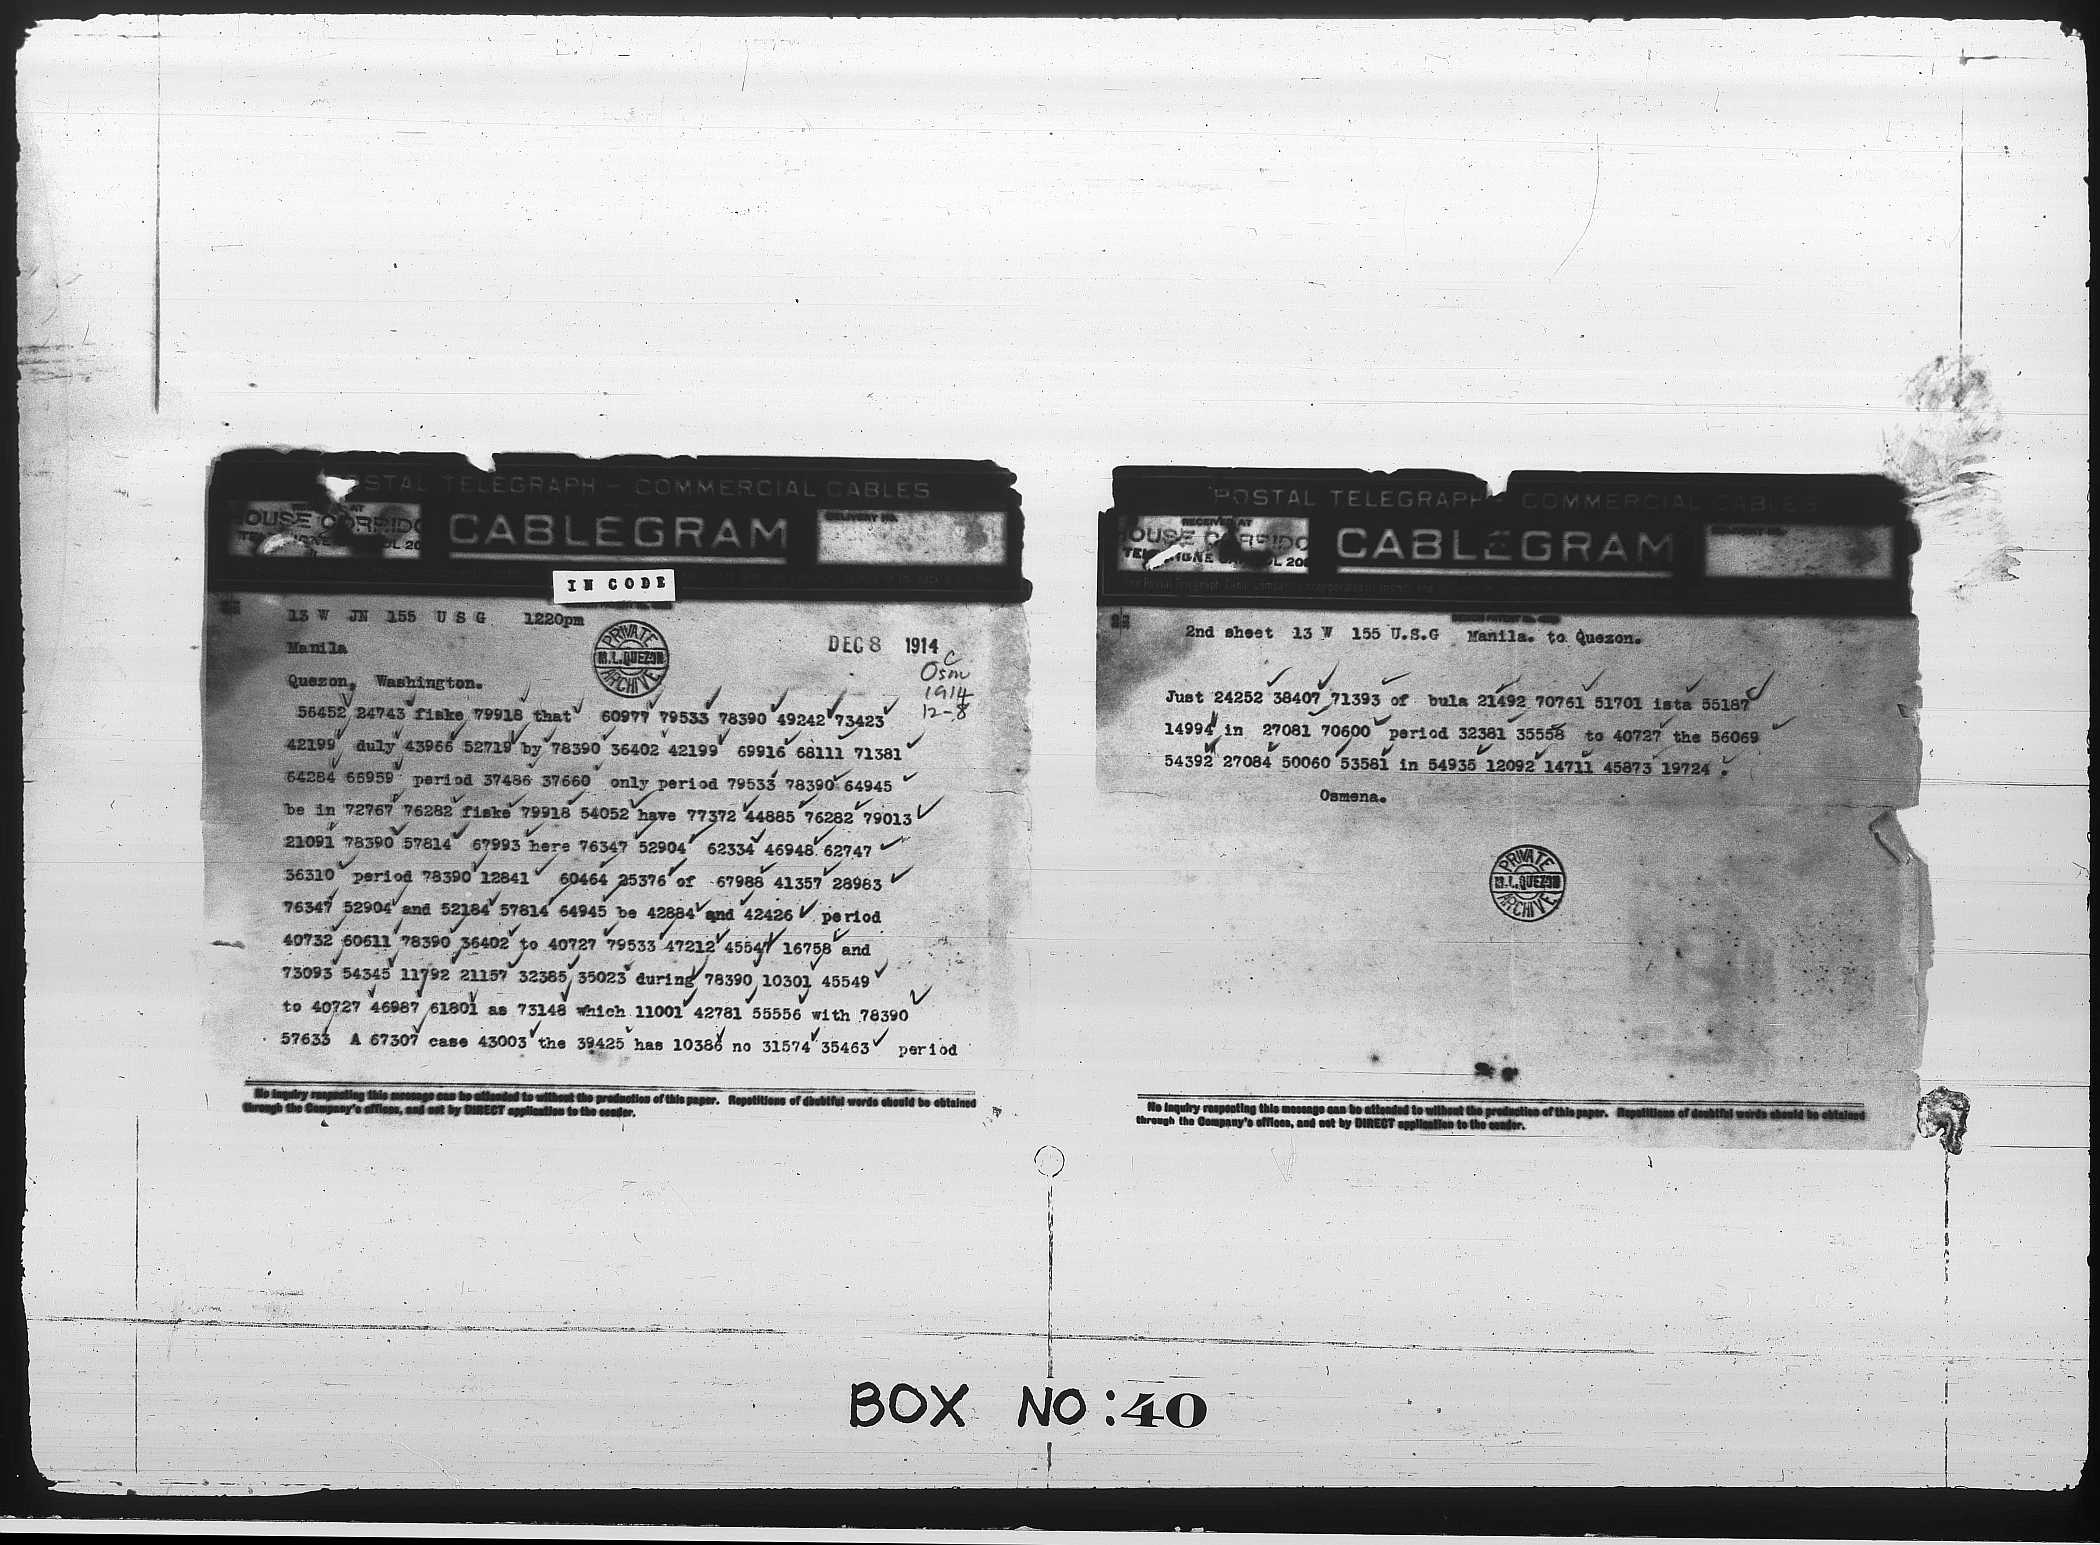 POSTAL TELEGRAPH - COMMERCIAL CABLES
CABLEGRAM
DELIVERY NO.
IN CODE
13 W JN 155 U S G 1220pm
Manila
DEC 8 1914
PRIVATE
M.L.QUEZON
ARCHIVE
C
Osm
1914
12-8
Quezon, Washington.
56452 24743 fiske 79918 that 60977 79533 78390 49242 73423
42199 duly 43966 52719 by 78390 36402 42199 69916 68111 71381
64284 66959 period 37486 37660 only period 79533 78390 64945
be in 72767 76282 fiske 79918 54052 have 77372 44885 76282 79013
21091 78390 57814 67993 here 76347 52904 62334 46948 62747
36310 period 78390 12841 60464 25376 of 67988 41357 28983
76347 52904 and 52184 57814 64945 be 42884 and 42426 period
40732 60611 78390 36402 to 40727 79533 47212 45547 16758 and
73093 54345 11792 21157 32385 35023 during 78390 10301 45549
to 40727 46987 61801 as 73148 which 11001 42781 55556 with 78390
57633 A 67307 case 43003 the 39425 has 10386 no 31574 35463 period
No inquiry respecting this message can be attended to without the production of this paper. Repetitions of doubtful words should be obtained
through the Company's offices, and not by DIRECT application to the sender.
POSTAL TELEGRAPH COMMERCIAL CABLES
RECEIVED AT
CABLEGRAM
DELIVERY NO.
2nd sheet 13 W 155 U.S.G Manila. to Quezon.
Just 24252 38407 71393 of bula 21492 70761 51701 ista 55187
14994 in 27081 70600 period 32381 35558 to 40727 the 56069
54392 27084 50060 53581 in 54935 12092 14711 45873 19724 .
Osmena.
PRIVATE
M.L.QUEZON
ARCHIVE
No inquiry respecting this message can be attended to without the production of this paper. Repetitions of doubtful words should be obtained
through the Company's offices, and not by DIRECT application to the sender.
BOX NO:40